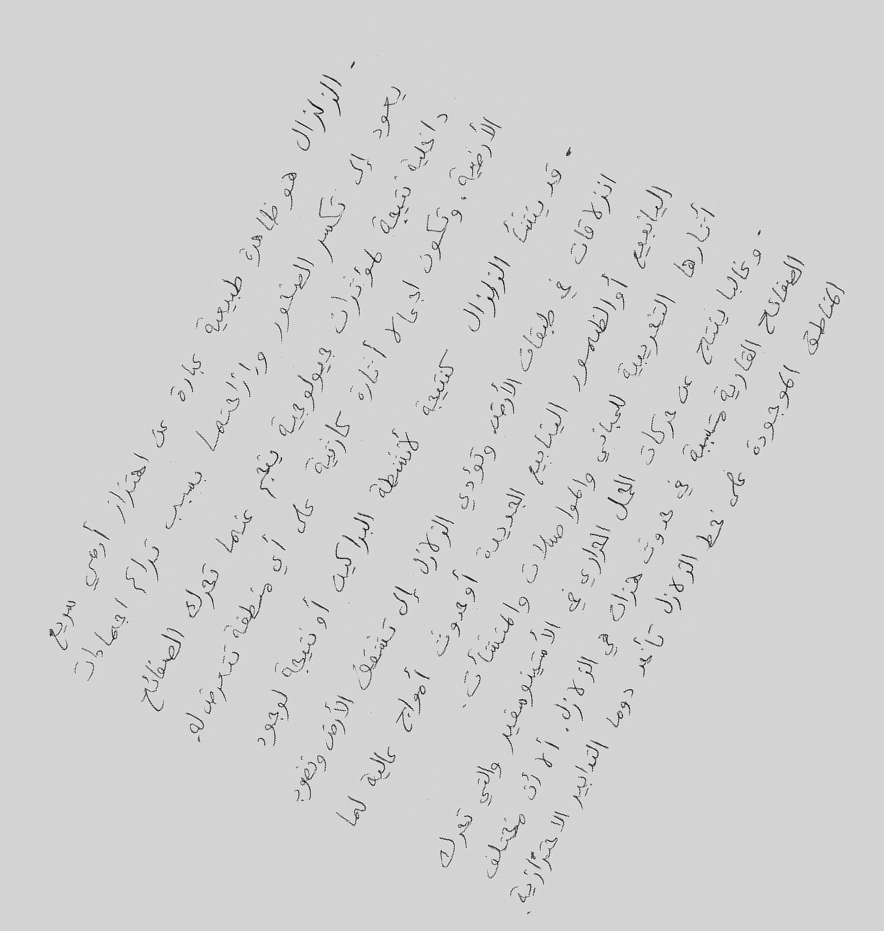 . الزلزال هو ظاهرة طبيعية عبارة عن اهتزاز أرضي سريع
يعود إلى تكسر الصخور وازاحتها بسبب تراكم اجهادات
داخلية نتيجة لمؤثرات جيولوجية ينجم عنها تحرك الصفائح
الأرضية. وتكون اجمالا أثاره كارثية على أي منطقة تتعرض له.
. قد ينشأ الزلزال كنتيجة لأنشطة البراكين أو نتيجة لوجود
انزلاقات في طبقات الأرض وتؤدي الزلازل إلى تشقق الأرض ونضوب
الينابيع أو الظهور الينابيع الجديدة أو حدوث أمواج عالية لما
أثارها التخريبية للمباني والمواصلات والمنشأت.
. وغالبا ينتج عن حركات الحمل الحراري في الأسينوسفير والتي تحرك
الصفائح القارية متسببة في حدوث هزات هي الزلازل. ألا أن مختلف
المناطق الموجودة على خط الزلازل تأخد دوما التدابير الاحترازية.